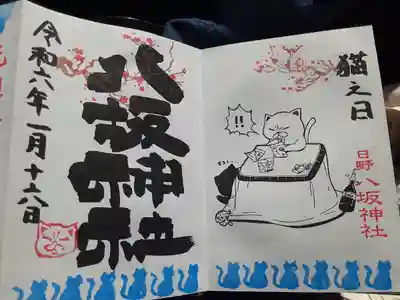 猫之日
日野八坂神社
!!
八坂神社
令和六年一月十六日